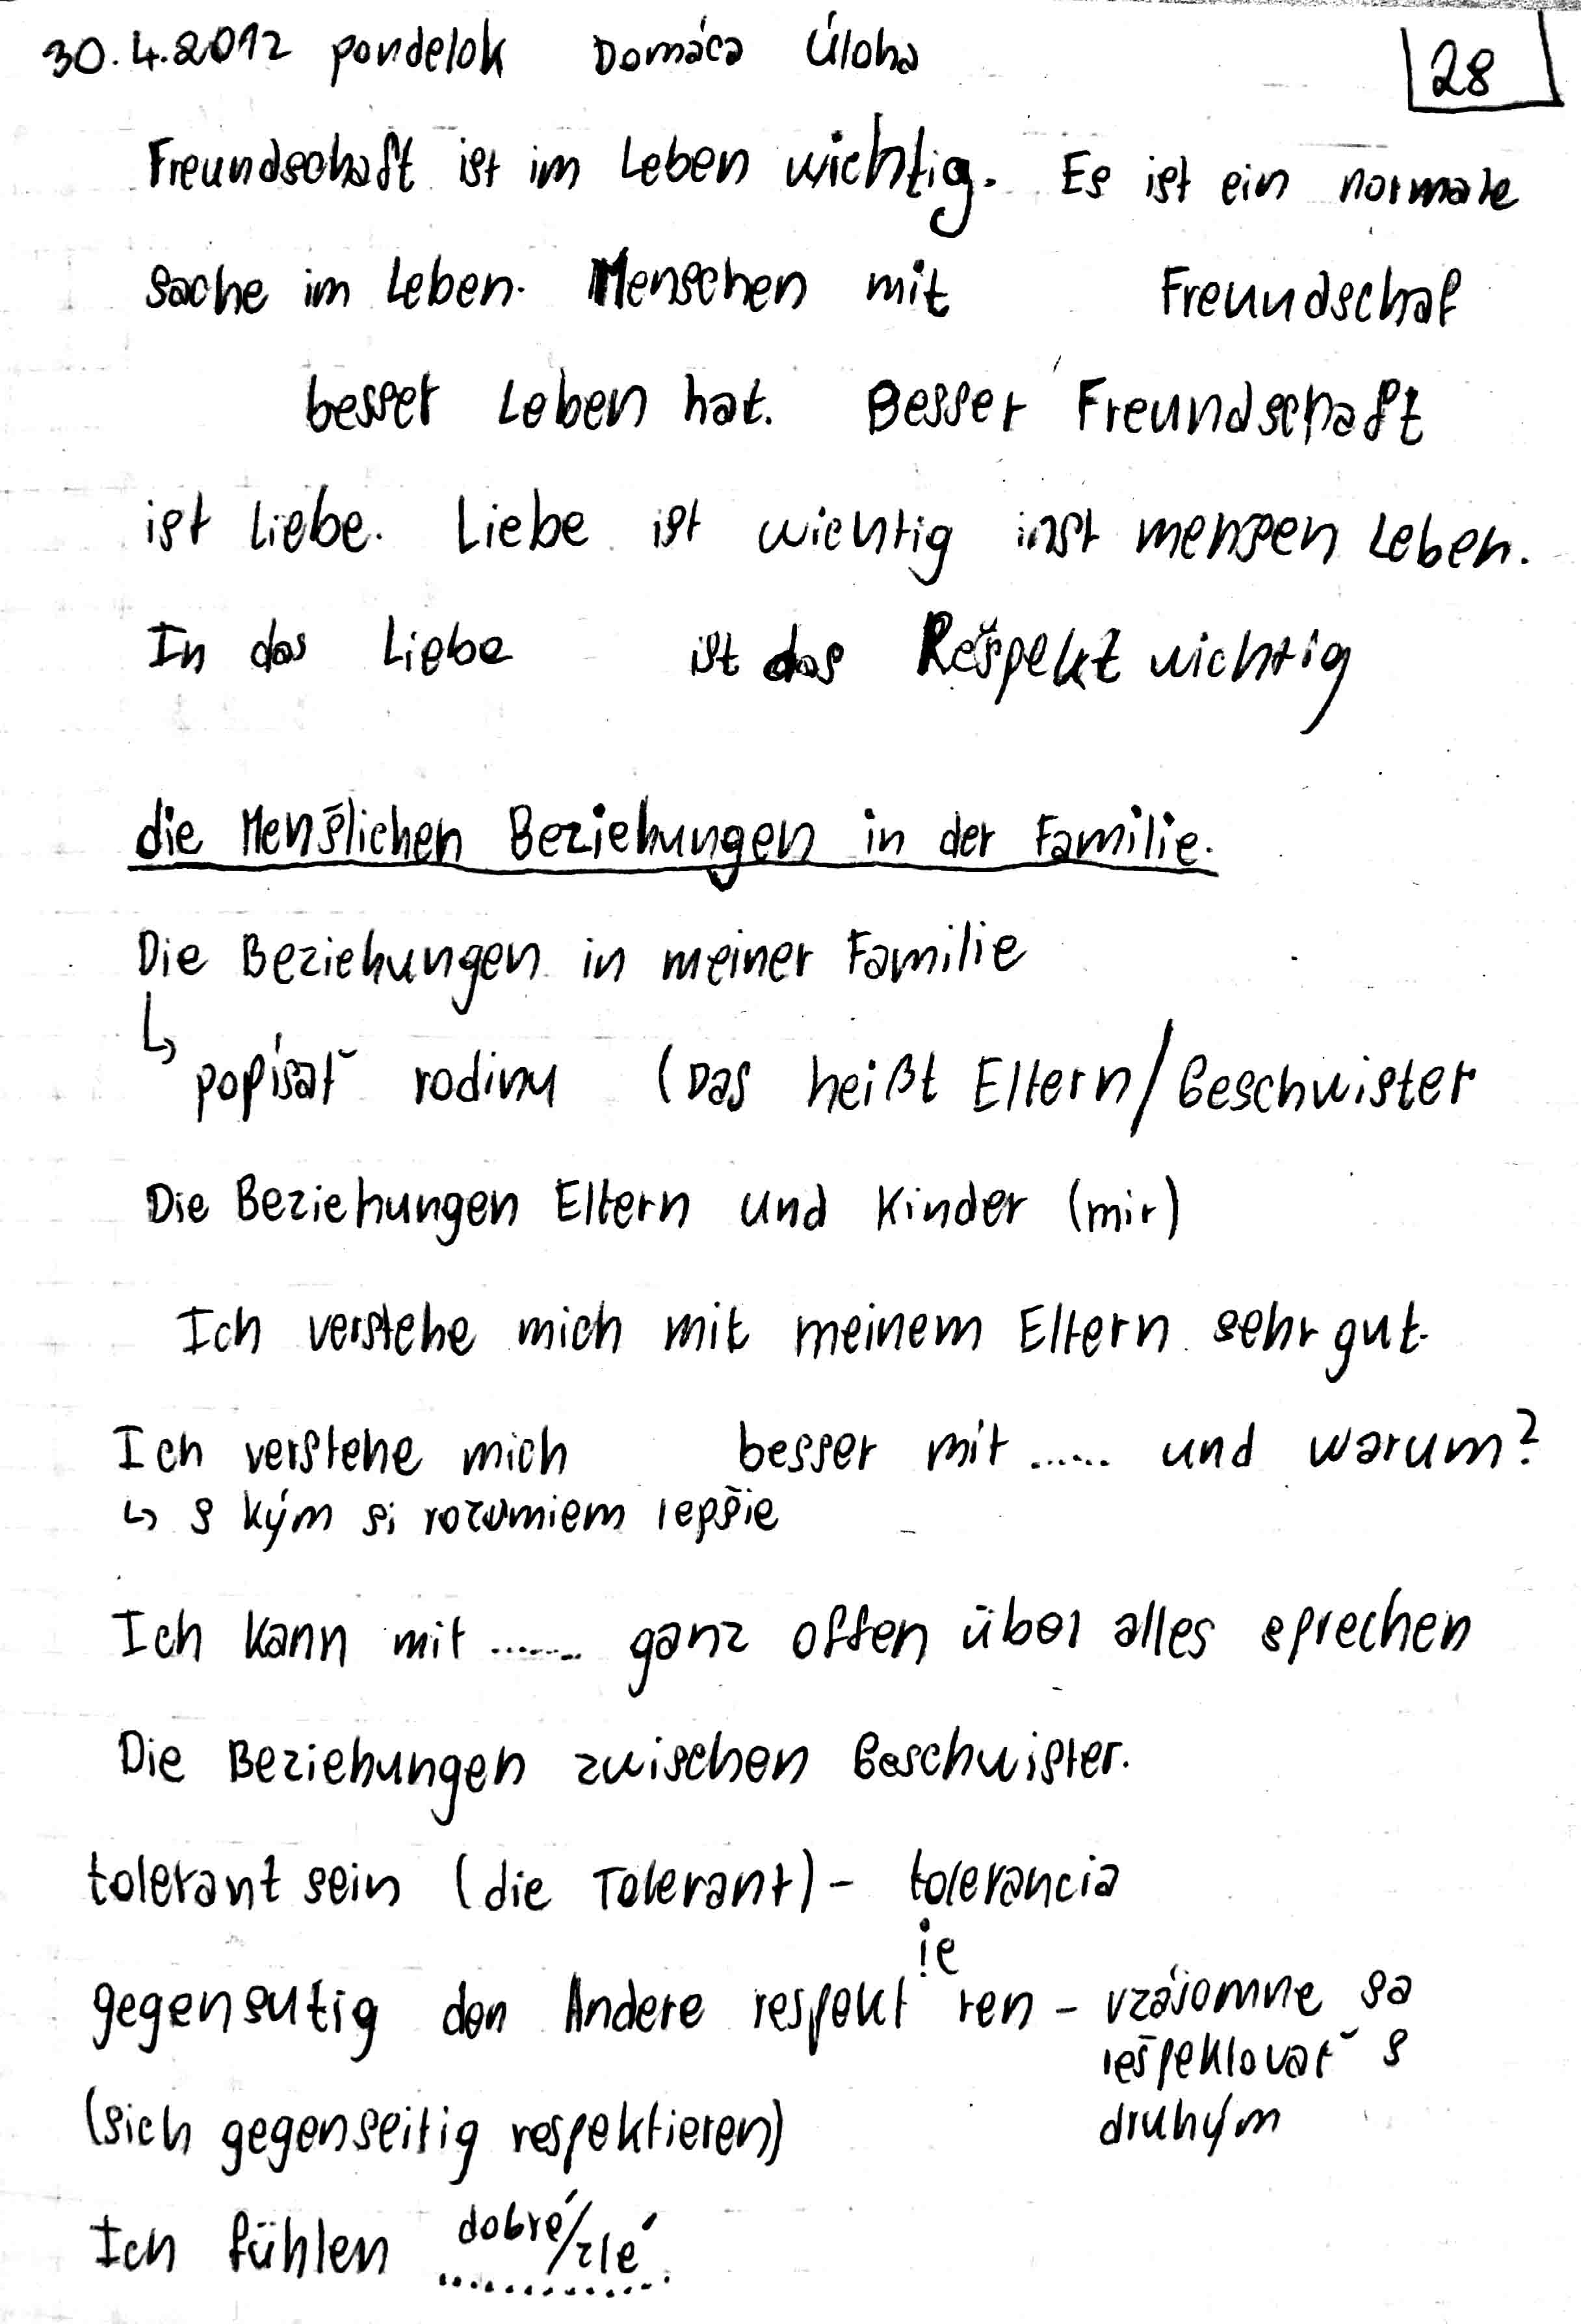 30.4.2012 pondelok Domáca Úloha
28
Freundschaft ist im Leben wichtig. Es ist ein normale
Sache im Leben. Menschen mit Freundschaf
besser Leben hat. Besser Freundschaft
ist Liebe. Liebe ist wichtig inst mensen Leben.
In das Liebe ist das Rešpekt wichtig
die Menšlichen Beziehungen in der Familie.
Die Beziehungen in meiner Familie
↳ popísať rodinu (Das heißt Eltern/Geschwister
Die Beziehungen Eltern und Kinder (mir)
Ich verstehe mich mit meinem Eltern sehr gut.
Ich verstehe mich besser mit ...... und warum?
↳ s kým si rozumiem lepšie
Ich kann mit ...... ganz offen über alles sprechen
Die Beziehungen zwischen Geschwister.
tolerant sein (die Tolerant) - tolerancia
gegensutig den Andere respekt ie ren - vzájomne sa
rešpektovať s
(sich gegenseitig respektieren) druhým
Ich fühlen dobré/zlé